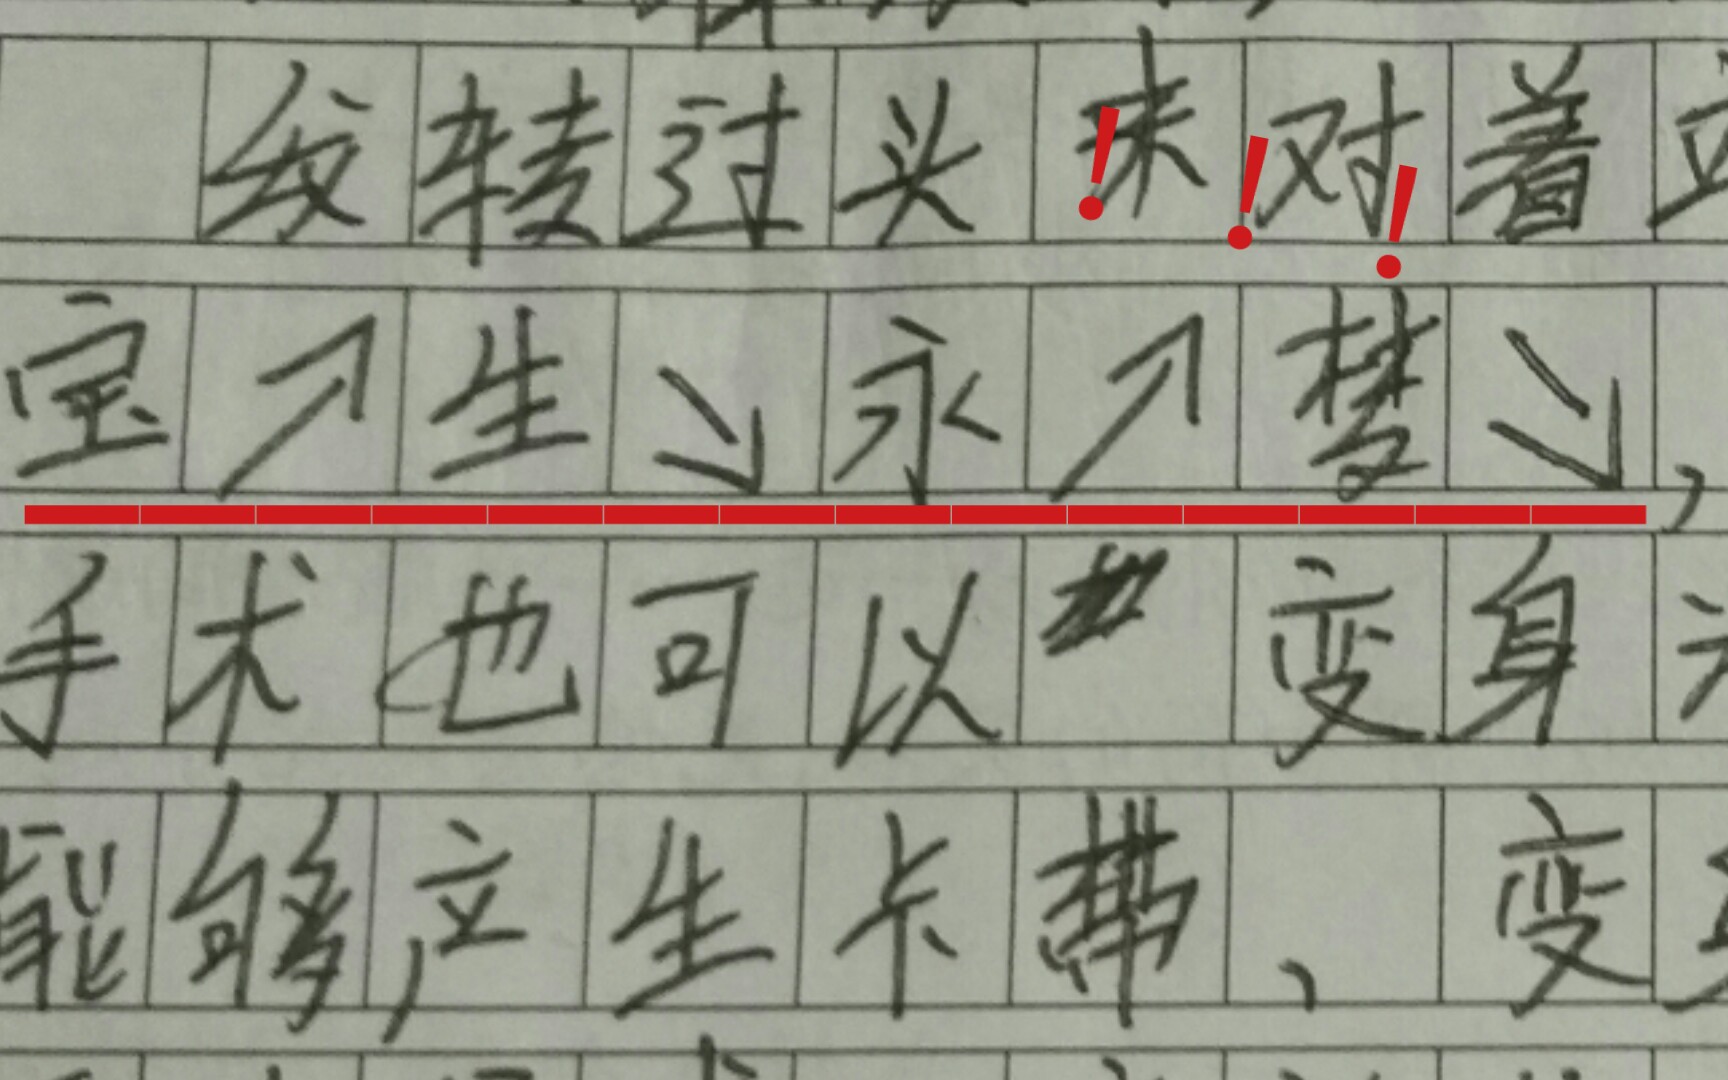 转过头来对着
宝↗生↘永↗梦↘，
手术也可以变身
能够产生卡带、变